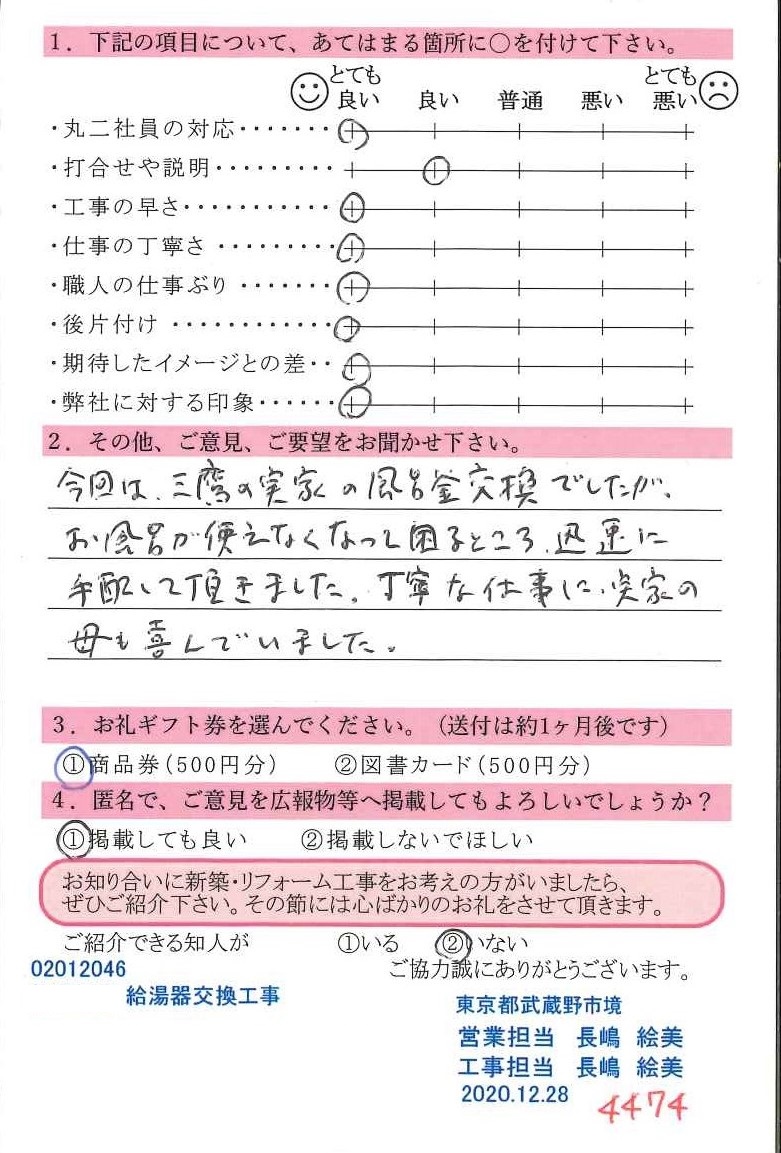 1．下記の項目について、あてはまる箇所に○を付けて下さい。
とても良い 良い 普通 悪い とても悪い
・丸二社員の対応・・・・・・・
・打合せや説明・・・・・・・・・
・工事の早さ・・・・・・・・・・・
・仕事の丁寧さ・・・・・・・・・
・職人の仕事ぶり・・・・・・・
・後片付け・・・・・・・・・・・・
・期待したイメージとの差・・
・弊社に対する印象・・・・・・
2．その他、ご意見、ご要望をお聞かせ下さい。
今回は、三鷹の実家の風呂釜交換でしたが、
お風呂が使えなくなって困るところ、迅速に
手配して頂きました。丁寧な仕事に、実家の
母も喜んでいました。
3．お礼ギフト券を選んでください。（送付は約1ヶ月後です）
①商品券（500円分） ②図書カード（500円分）
4．匿名で、ご意見を広報物等へ掲載してもよろしいでしょうか？
①掲載しても良い ②掲載しないでほしい
お知り合いに新築・リフォーム工事をお考えの方がいましたら、
ぜひご紹介下さい。その節には心ばかりのお礼をさせて頂きます。
ご紹介できる知人が ①いる ②いない
ご協力誠にありがとうございます。
02012046
給湯器交換工事
東京都武蔵野市境
営業担当 長嶋 絵美
工事担当 長嶋 絵美
2020.12.28
4474